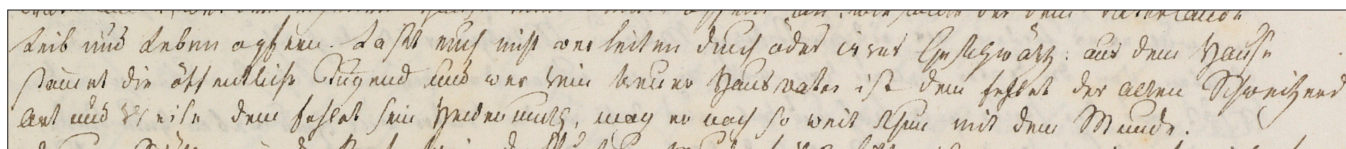 dem Vaterlande
Leib und Leben opfern. Laßt euch nicht verleiten durch oder irres Geschwätz: aus dem Hause
stamet die öffentliche Tugend und wer kein treuer Hausvater ist dem fehlet der alten Schweitzerd
Art und Weise dem fehlet sein Heldenmuth, mag er noch so weit thun mit dem Munde.